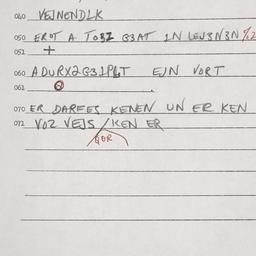 040 VEJNENDIK
050 EROT A TO3Z G3AT IN LEJ3N3N %2
051 +
060 ADURX2G31P6T EJN VORT
061
070 ER DARFES KENEN UN ER KEN
071 VOZ VEJS / KEN ER
GOR